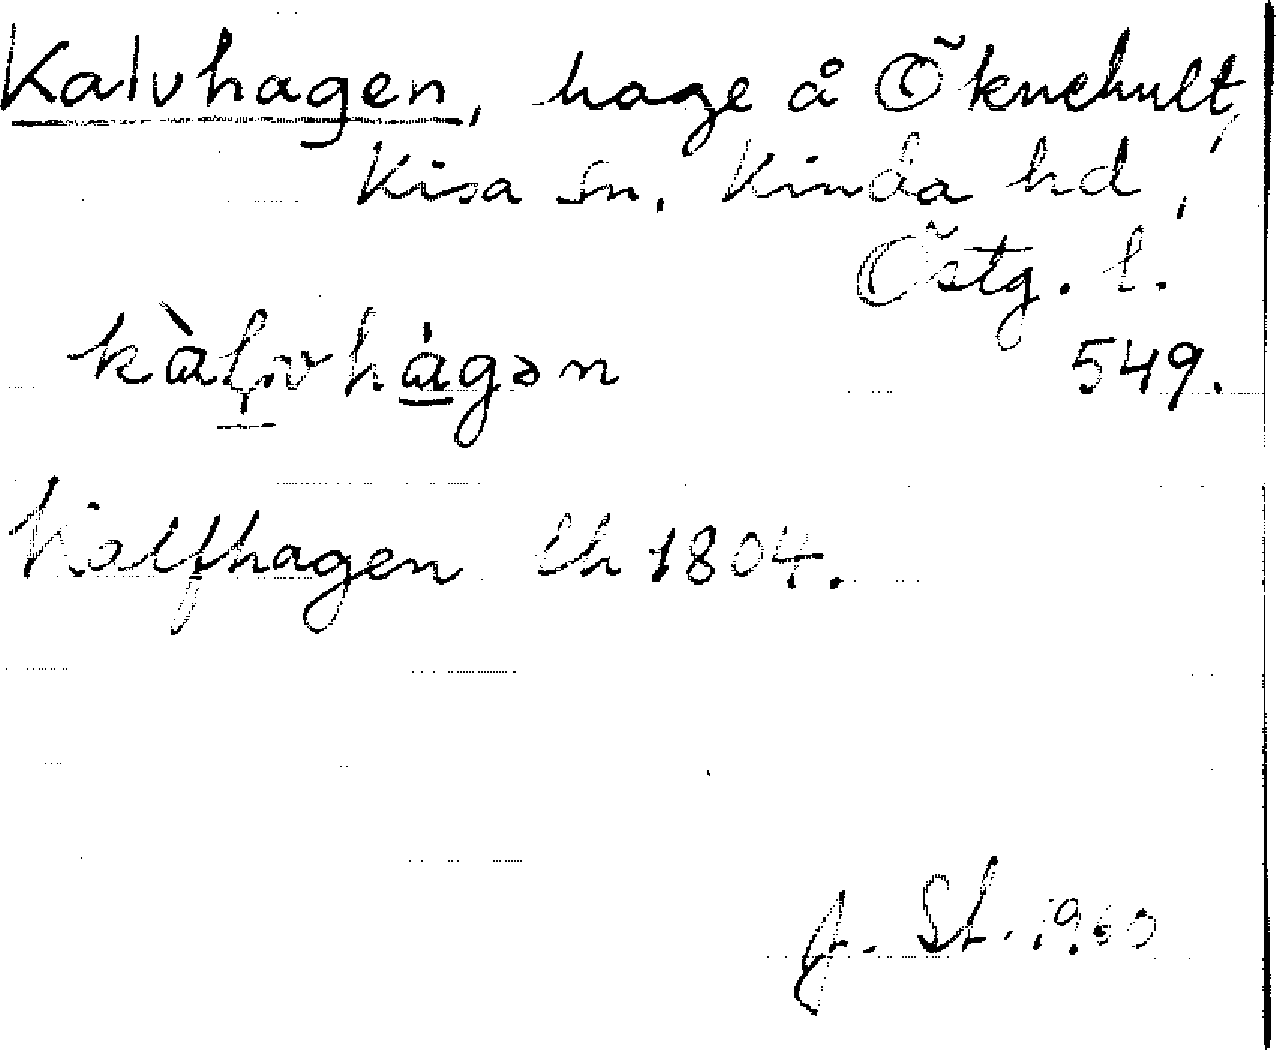 Kalvhagen, hage å Öknehult,
Kisa sn, Kinda hd,
Östg. l.
kàḷvhágən 549.
Kalfhagen Lh 1804.
St. 1960